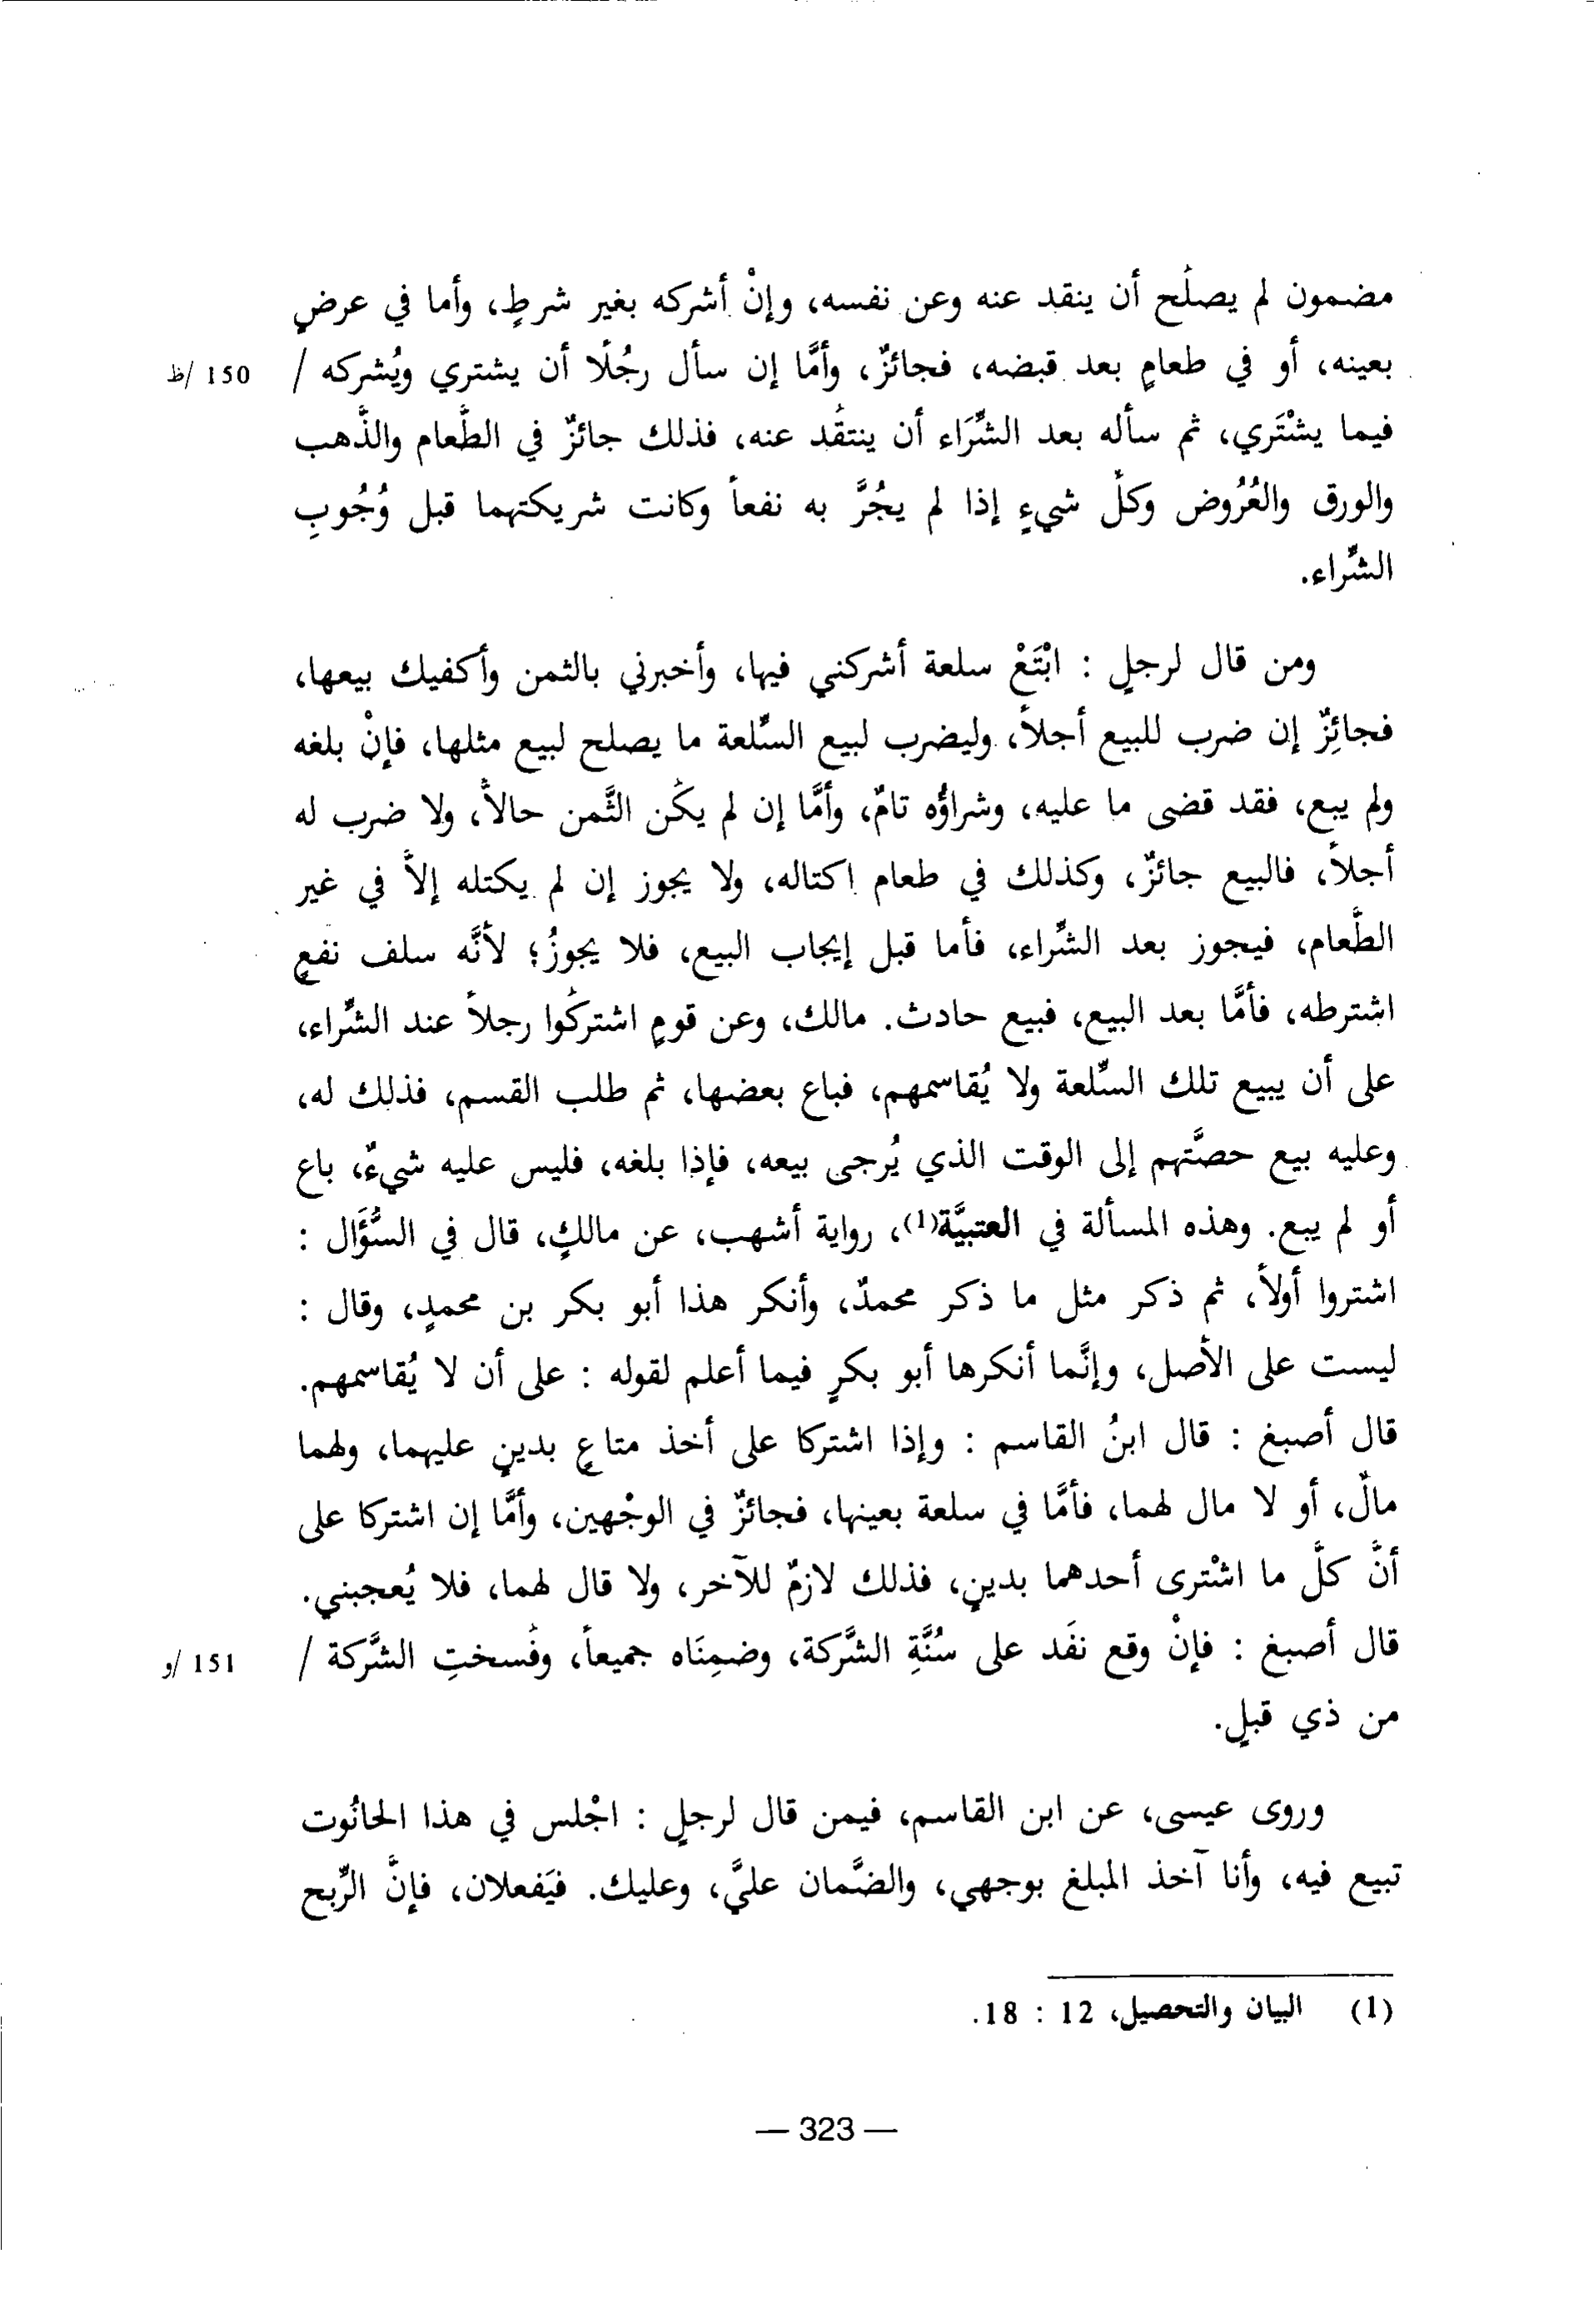 مضمون لم يصلُح أن ينقد عنه وعن نفسه، وإنْ أشركه بغير شرطٍ، وأما في عرضٍ
بعينه، أو في طعامٍ بعد قبضه، فجائزٌ، وأمَّا إن سأل رجُلًا أن يشتري ويُشركه / 150 /ظ
فيما يشْتَري، ثم سأله بعد الشِّرَاء أن ينتقُد عنه، فذلك جائزٌ في الطَّعام والذَّهب
والورق والعُرُوض وكلِّ شيءٍ إذا لم يجُرَّ به نفعاً وكانت شريكتهما قبل وُجُوبِ
الشِّراء.
ومن قال لرجلٍ : ابْتَعْ سلعة أشركني فيها، وأخبرني بالثمن وأكفيك بيعها،
فجائِزٌ إن ضرب للبيع أجلاً، وليضرب لبيع السِّلعة ما يصلح لبيع مثلها، فإنْ بلغه
ولم يبع، فقد قضى ما عليه، وشراؤُه تامٌ، وأمَّا إن لم يكُن الثَّمن حالاًّ، ولا ضرب له
أجلاً، فالبيع جائزٌ، وكذلك في طعام اكتاله، ولا يجوز إن لم يكتله إلاَّ في غير
الطَّعام، فيجوز بعد الشِّراء، فأما قبل إيجاب البيع، فلا يجوزُ؛ لأنَّه سلف نفعٍ
اشترطه، فأمَّا بعد البيع، فبيع حادث. مالك، وعن قومٍ اشتركُوا رجلاً عند الشِّراء،
على أن يبيع تلك السِّلعة ولا يُقاسمهم، فباع بعضها، ثم طلب القسم، فذلك له،
وعليه بيع حصَّتهم إلى الوقت الذي يُرجى بيعه، فإذا بلغه، فليس عليه شيءٌ، باع
أو لم يبع. وهذه المسألة في العتبيَّة(1)، رواية أشهب، عن مالكٍ، قال في السُّؤَال :
اشتروا أولاً، ثم ذكر مثل ما ذكر محمدٌ، وأنكر هذا أبو بكر بن محمدٍ، وقال :
ليست على الأصل، وإنَّما أنكرها أبو بكرٍ فيما أعلم لقوله : على أن لا يُقاسمهم.
قال أصبغ : قال ابنُ القاسم : وإذا اشتركا على أخذ متاعٍ بدينٍ عليهما، ولهما
مالٌ، أو لا مال لهما، فأمَّا في سلعة بعينها، فجائزٌ في الوجْهين، وأمَّا إن اشتركا على
أنَّ كلَّ ما اشْترى أحدهما بدينٍ، فذلك لازمٌ للآخر، ولا قال لهما، فلا يُعجبني.
قال أصبغ : فإنْ وقع نفَد على سُنَّةِ الشَّركة، وضمِنَاه جميعاً، وفُسختِ الشَّركة / 151 /و
من ذي قبلٍ.
وروى عيسى، عن ابن القاسم، فيمن قال لرجلٍ : اجْلس في هذا الحانُوت
تبيع فيه، وأنا آخذ المبلغ بوجهي، والضَّمان عليَّ، وعليك. فيَفعلان، فإنَّ الرِّبح
(1) البيان والتحصيل، 12 : 18.
— 323 —